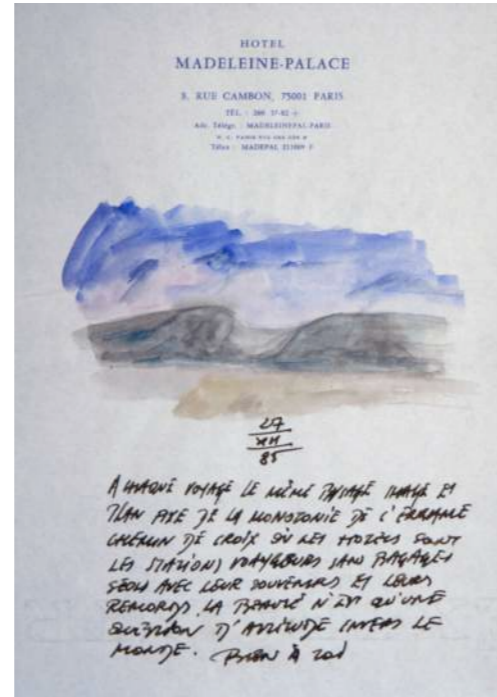 HOTEL
MADELEINE-PALACE
8, RUE CAMBON, 75001 PARIS
TÉL. : 260 37-82 +
Adr. Télégr. : MADELEINEPAL-PARIS
Télex : MADEPAL
27
XII
85
A CHAQUE VOYAGE LE MÊME PAYSAGE IMAGE ET
PLAN FIXE DE LA MONOTONIE DE L'ERRANCE
CHEMIN DE CROIX OÙ LES HOTELS SONT
LES STATIONS VOYAGEURS SANS BAGAGES
SEULS AVEC LEUR SOUVENIRS ET LEURS
REMORDS. LA BEAUTÉ N'EST QU'UNE
QUESTION D'ATTITUDE ENVERS LE
MONDE. BIEN À TOI